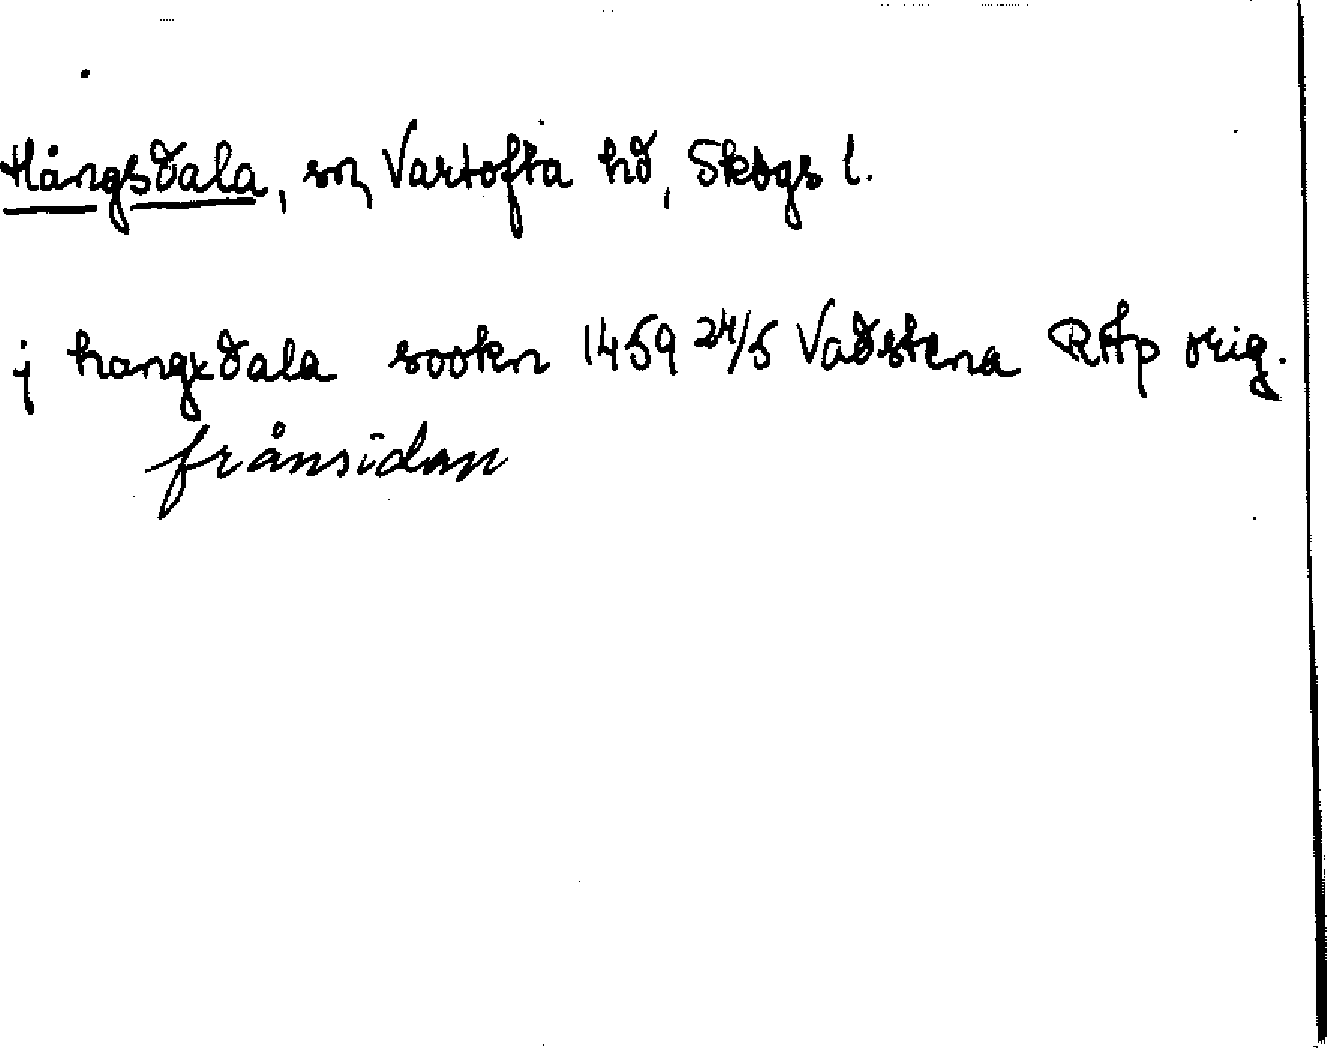 Hångsdala, sn, Vartofta hd, Skbgs l.
j hangxdala sookn 1459 24/5 Vadstena RAp orig.
frånsidan